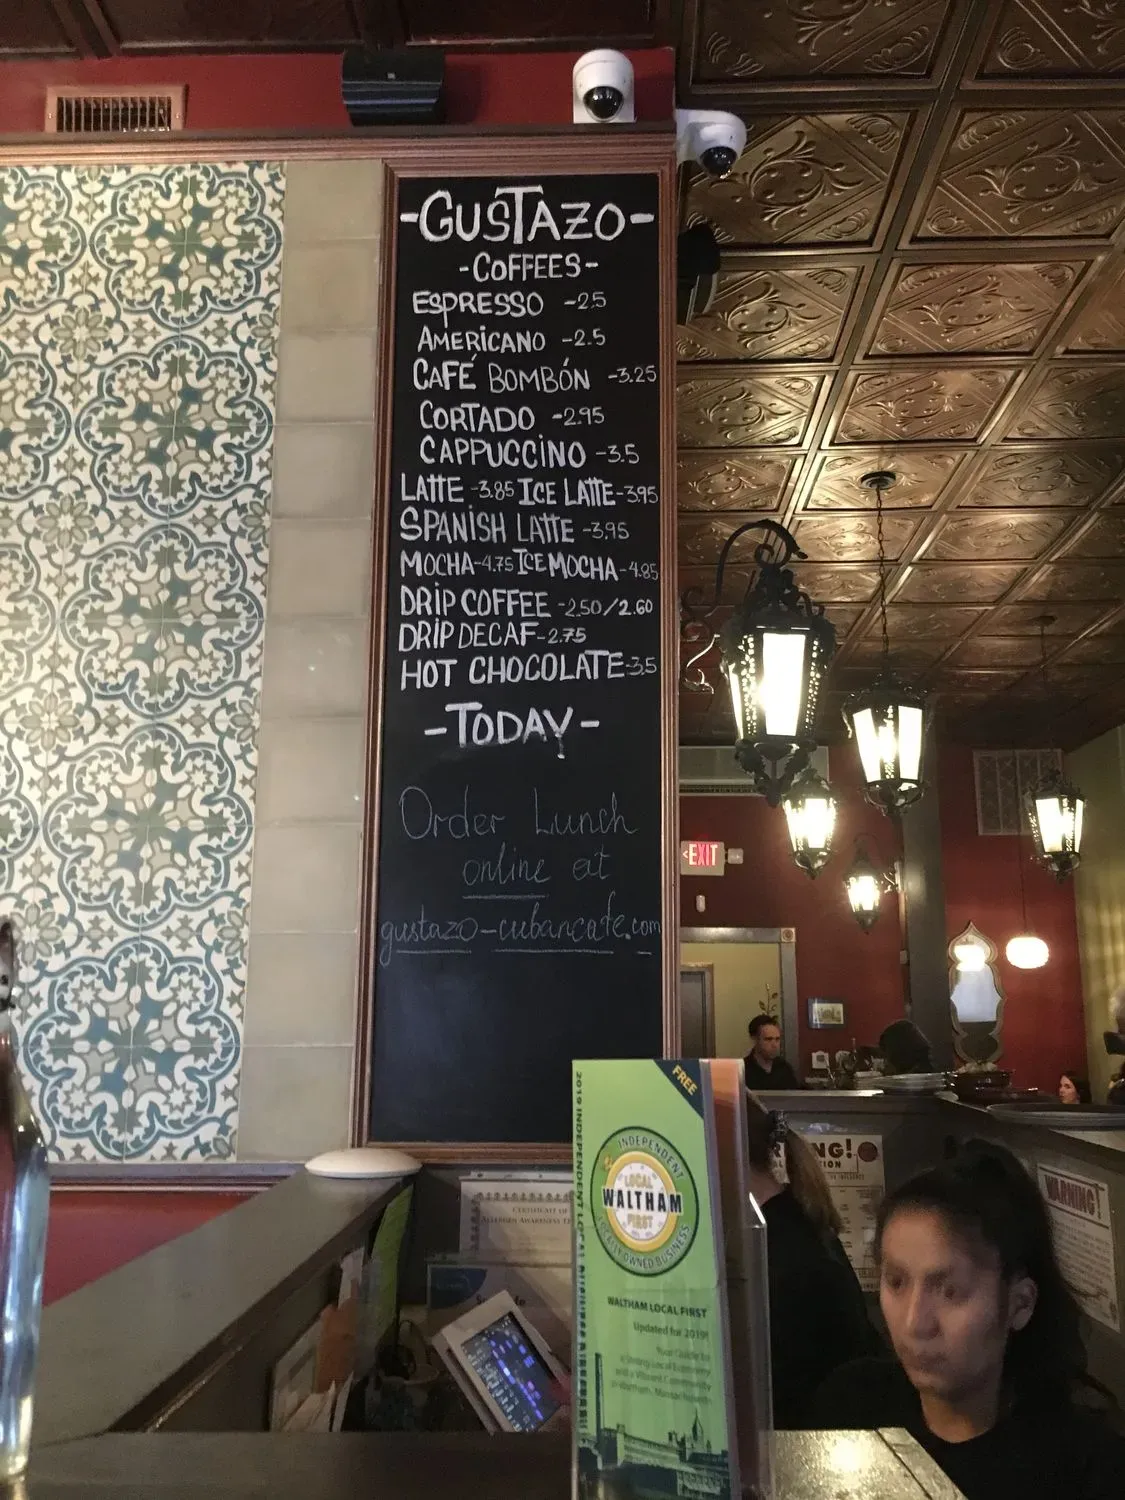 -GUSTAZO-
-COFFEES-
ESPRESSO -2.5
AMERICANO -2.5
CAFÉ BOMBÓN -3.25
CORTADO -2.95
CAPPUCCINO -3.5
LATTE -3.85 ICE LATTE -3.95
SPANISH LATTE -3.95
MOCHA -4.75 ICE MOCHA -4.85
DRIP COFFEE -2.50/2.60
DRIP DECAF -2.75
HOT CHOCOLATE -3.5
-TODAY-
Order Lunch
online at
gustazo-cubancafe.com
EXIT
FREE
2019 INDEPENDENT LOCAL
INDEPENDENT
LOCAL
WALTHAM
FIRST
LOCALLY OWNED BUSINESS
WALTHAM LOCAL FIRST
Updated for 2019!
Your Guide to
a Strong Local Economy
and a Vibrant Community
in Waltham, Massachusetts
CERTIFICATE OF
ALLERGEN AWARENESS
WARNING!